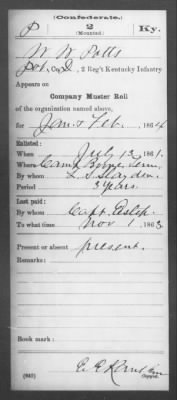 (Confederate.)
P 2 Ky.
(Mounted)
W W Potts
Pvt, Co. 2 Reg't Kentucky Infantry
Appears on
Company Muster Roll
of the organization named above,
for Jan & Feb., 1864
Enlisted:
When July 13, 1861.
Where Camp Boone Tenn.
By whom
Period 3 years.
Last paid:
By whom Capt.
To what time Nov 1, 1863
Present or absent present.
Remarks:
Book mark:
Copyist.